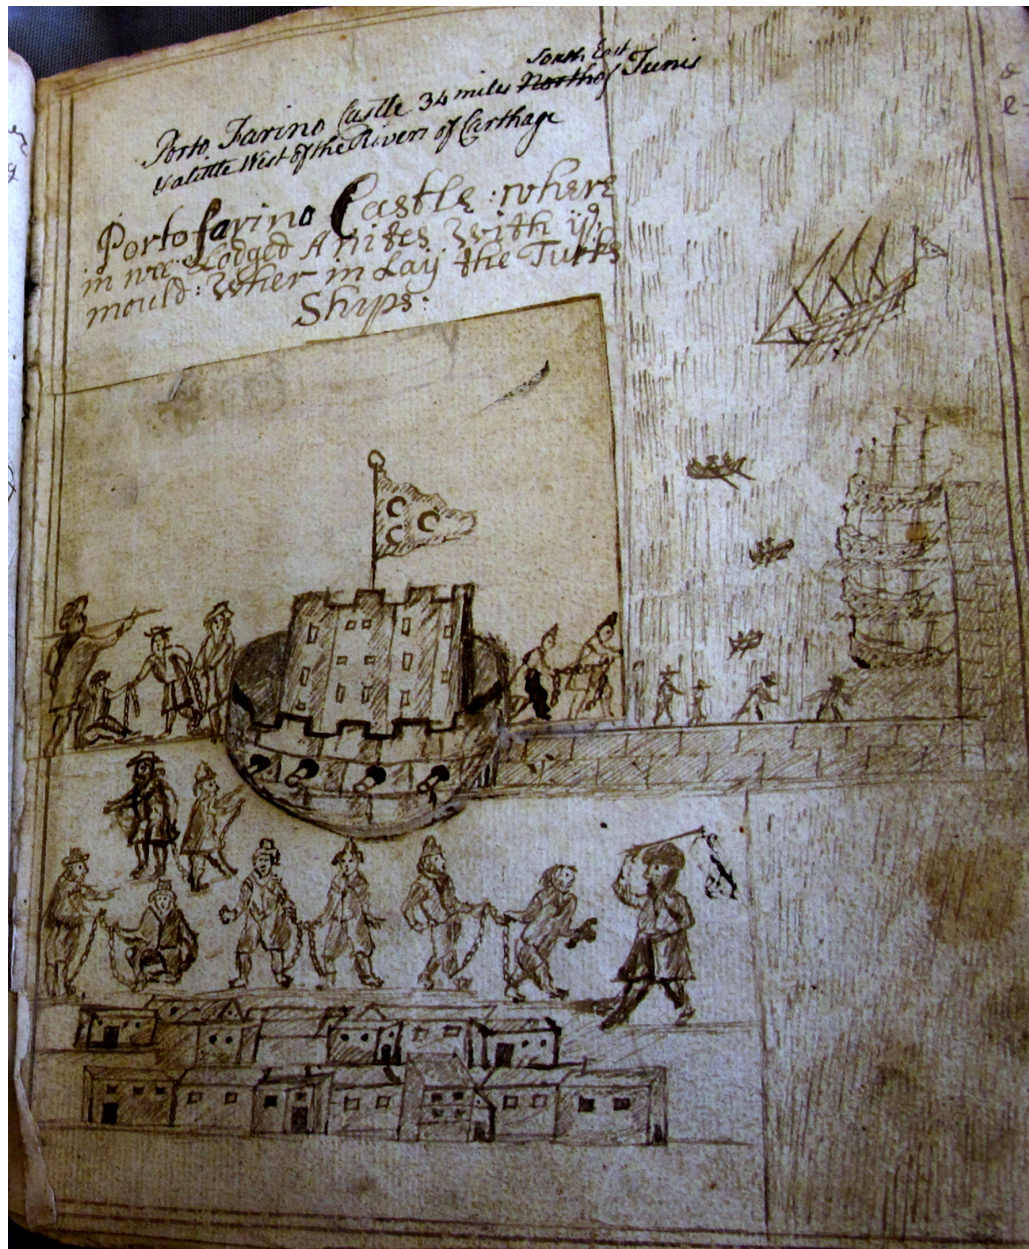 South East
Porto Farino Castle 34 miles North of Tunis
& a little West of the River of Carthage
Porto farino Castle : where
in wee Lodged A nites with ye
mould : Wher in Lay the Turks
Ships :